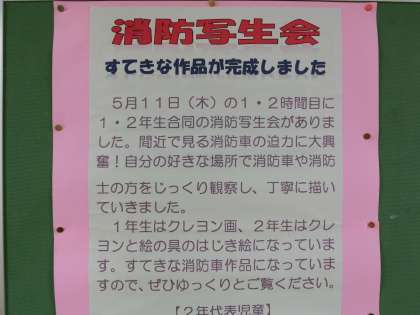 消防写生会
すてきな作品が完成しました
５月１１日（木）の１・２時間目に
１・２年生合同の消防写生会がありま
した。間近で見る消防車の迫力に大興
奮！自分の好きな場所で消防車や消防
士の方をじっくり観察し、丁寧に描い
ていきました。
１年生はクレヨン画、２年生はクレ
ヨンと絵の具のはじき絵になっていま
す。すてきな消防車作品になっています
ので、ぜひゆっくりとご覧ください。
【２年代表児童】